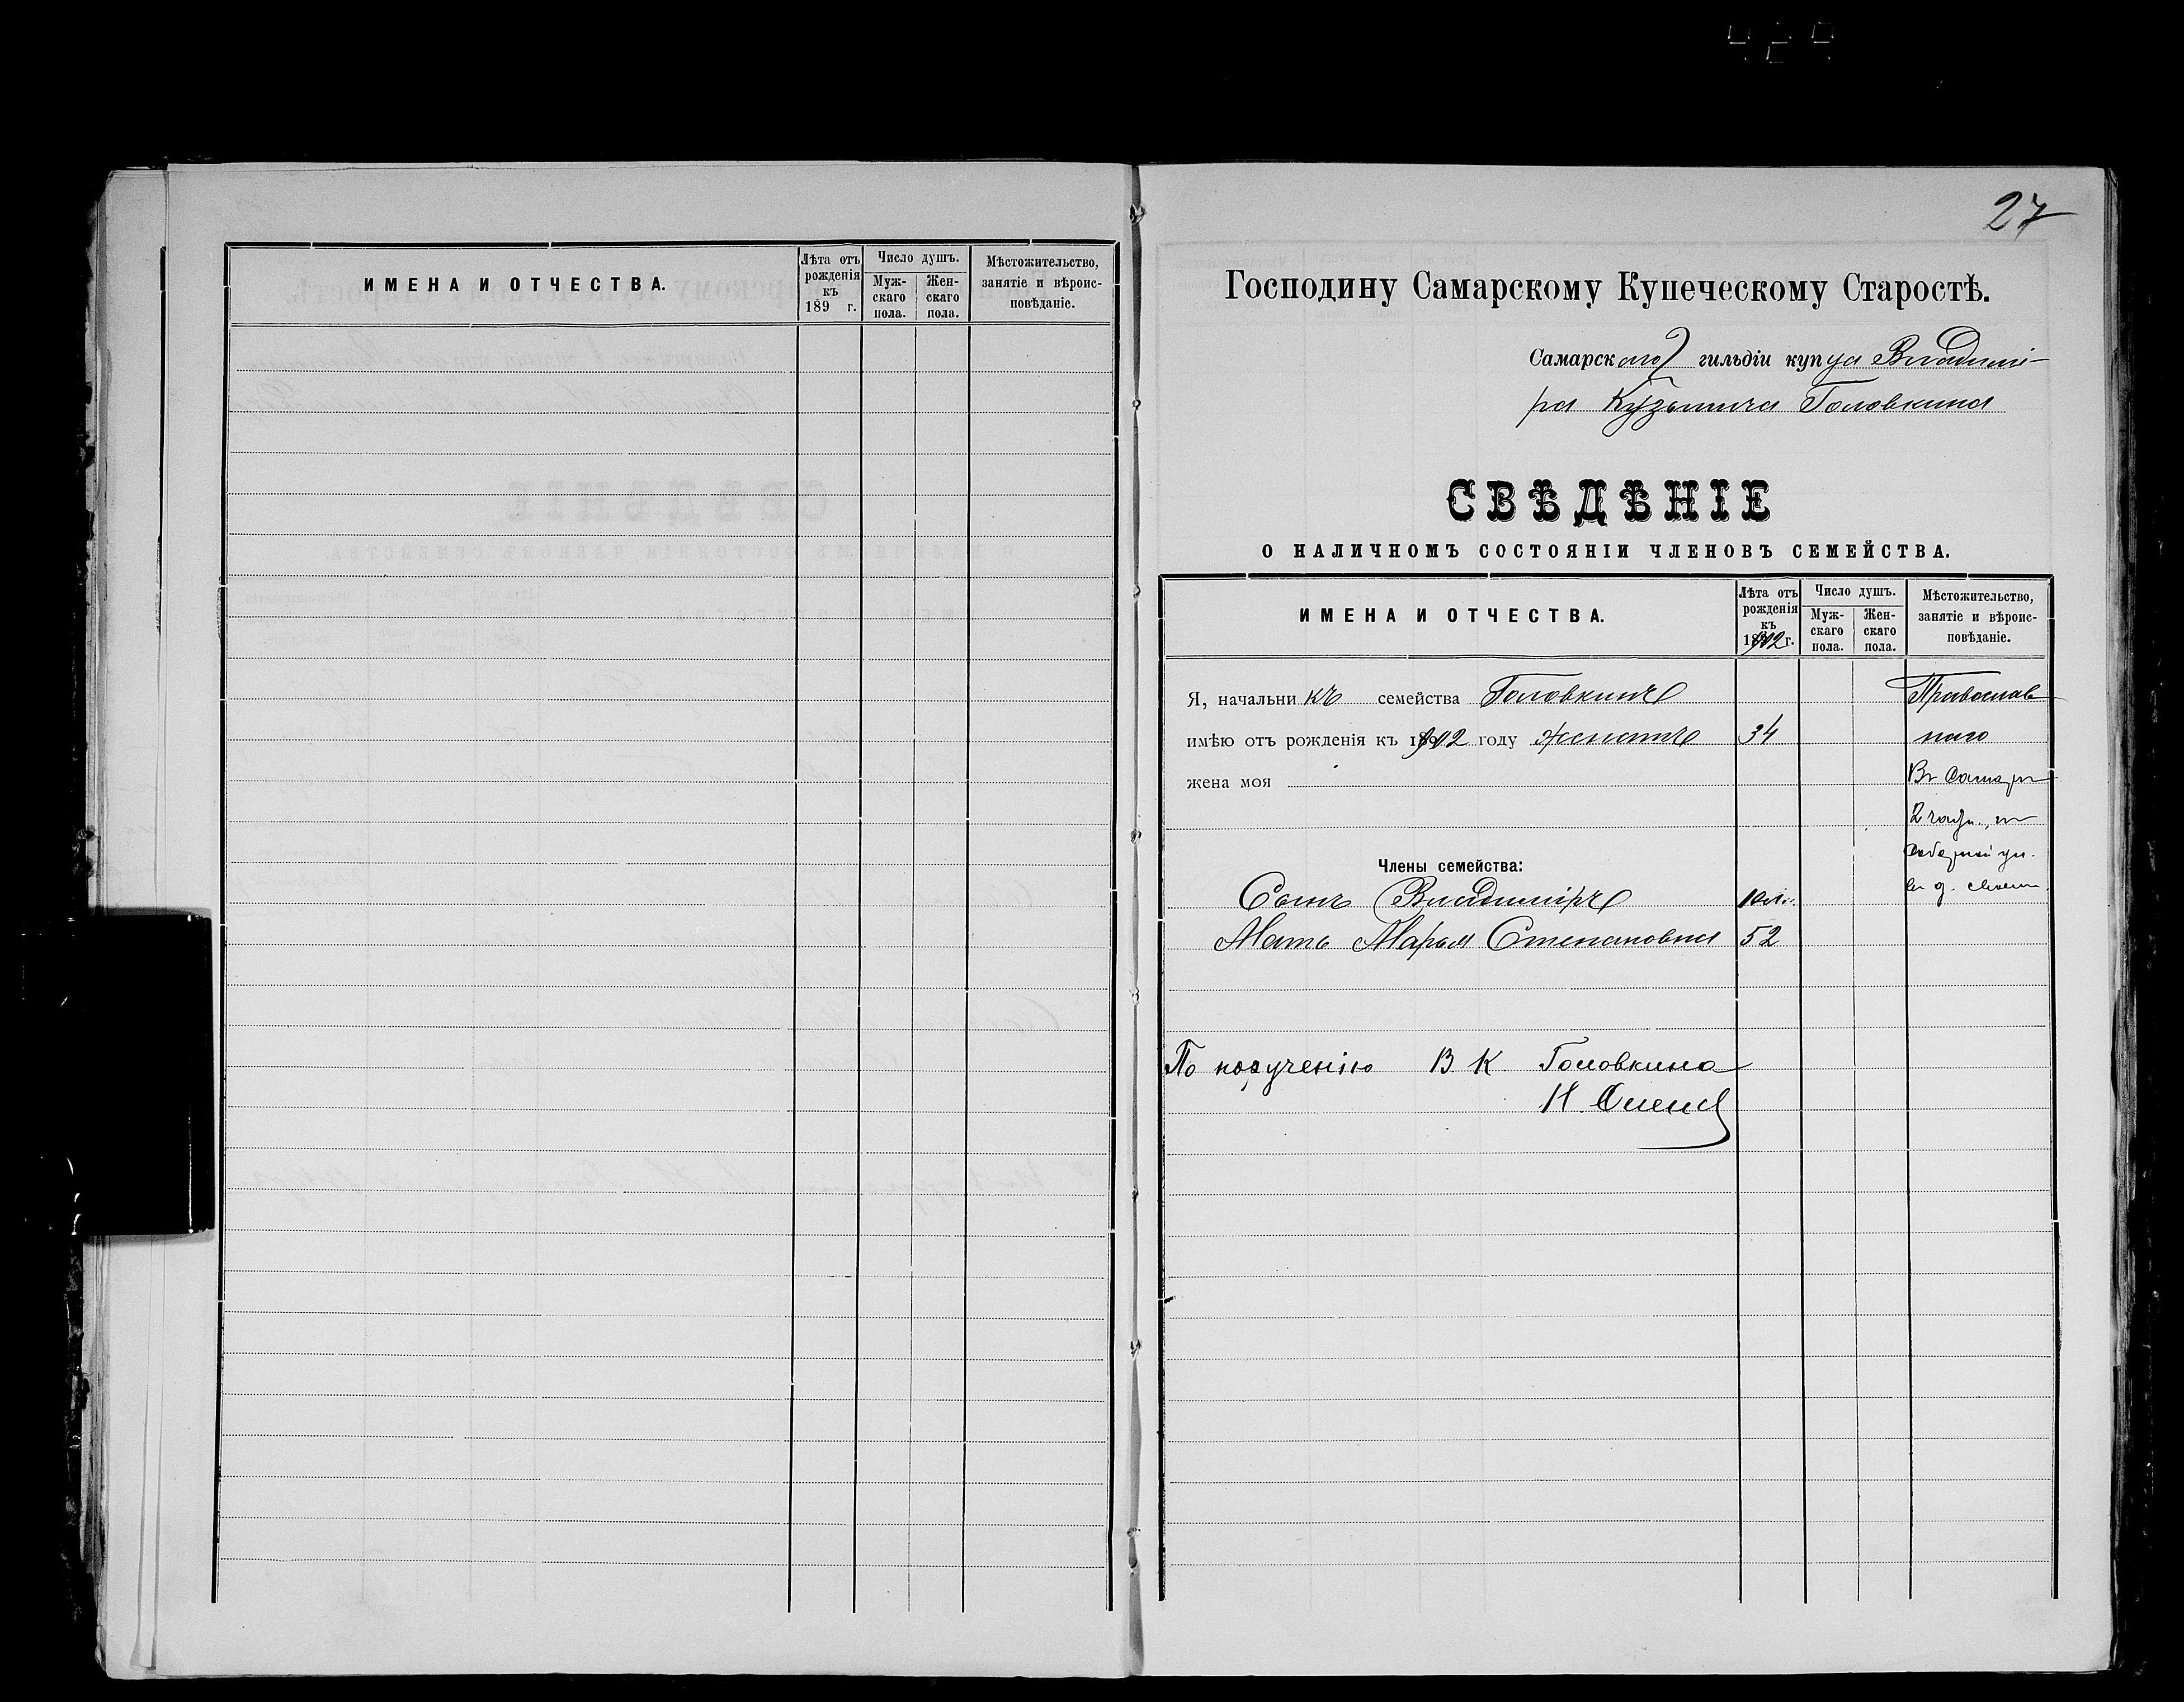 ИМЕНА И ОТЧЕСТВА.
Лѣта отъ рожденія къ 189 г.
Число душъ.
Муж-скаго пола.
Жен-скаго пола.
Мѣстожительство, занятіе и вѣроис-повѣданіе.
27
Господину Самарскому Купеческому Старостѣ.
Самарскаго 2 гильдіи купца Владимі-
ра Кузьмича Головкина
СВѢДѢНІЕ
О НАЛИЧНОМЪ СОСТОЯНІИ ЧЛЕНОВЪ СЕМЕЙСТВА.
ИМЕНА И ОТЧЕСТВА.
Лѣта отъ рожденія къ 1902 г.
Число душъ.
Муж-скаго пола.
Жен-скаго пола.
Мѣстожительство, занятіе и вѣроис-повѣданіе.
Я, начальникъ семейства Головкинъ
Православ
имѣю отъ рожденія къ 1902 году женатъ 34
наго
жена моя
Въ Самарѣ
2 части, на
Соборной ул.
въ д. своем
Члены семейства:
Сынъ Владиміръ
Мать Марья Степановна 52
По порученію В К Головкина